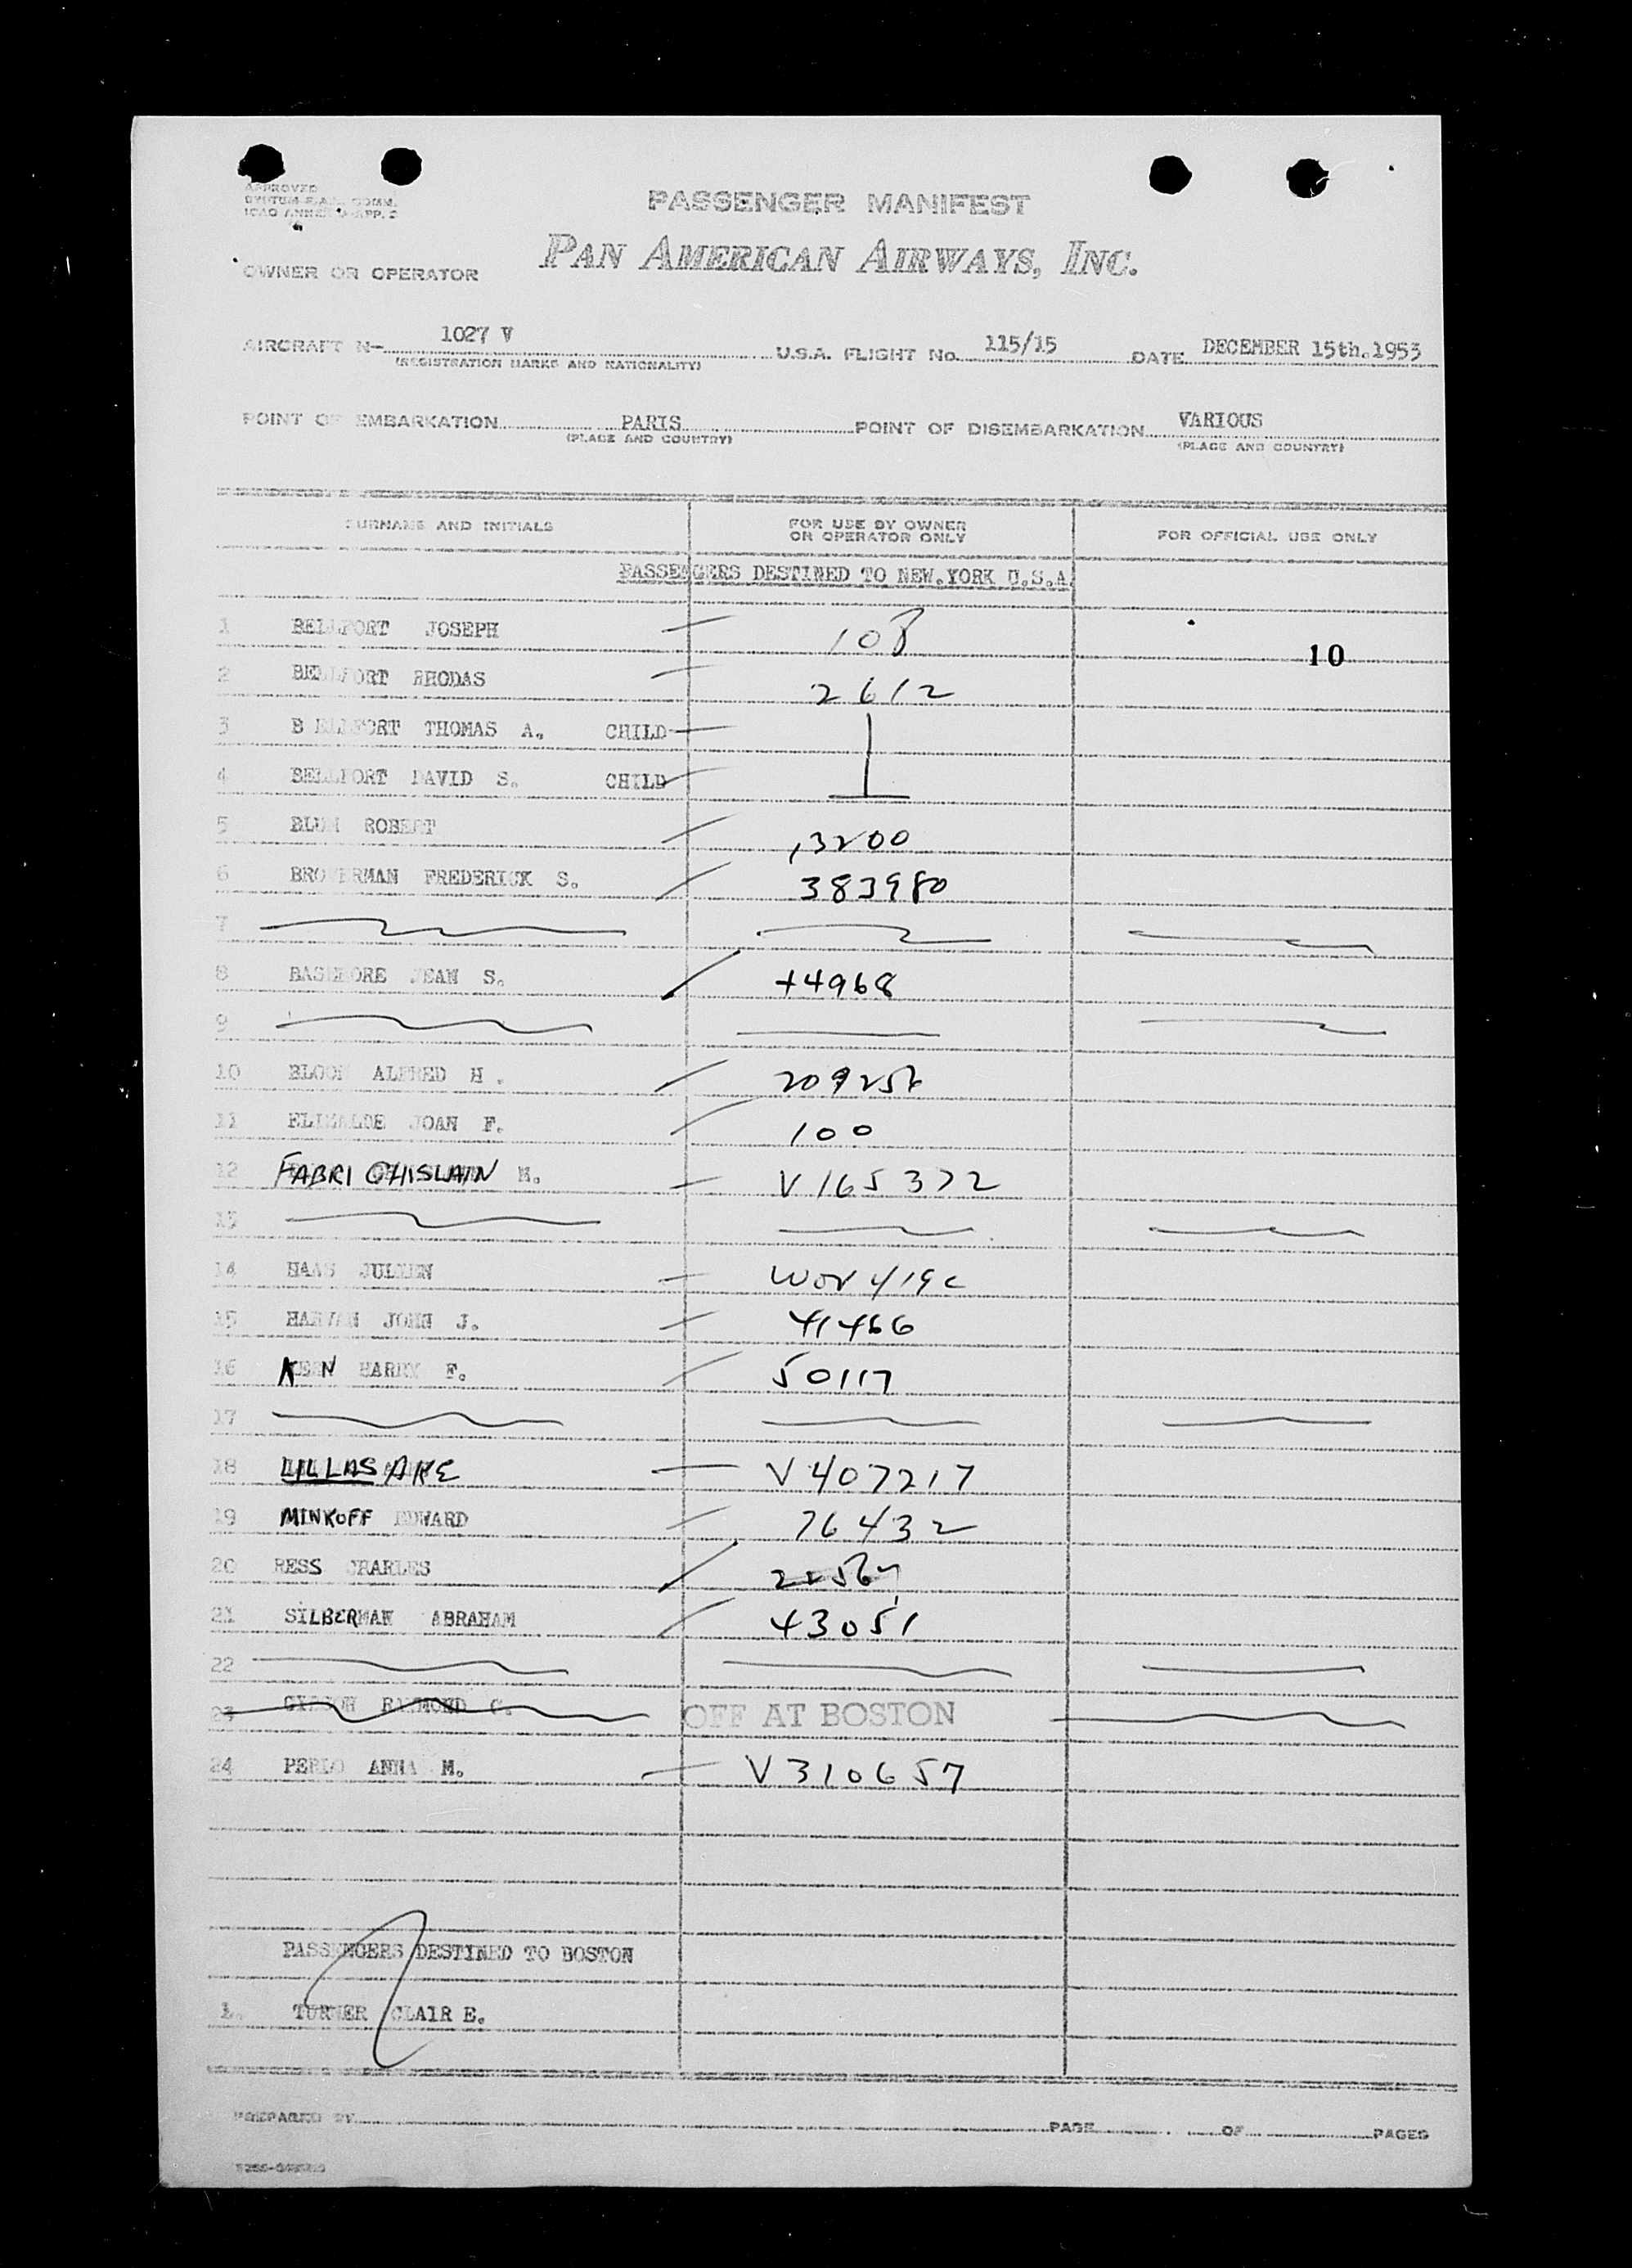 APPROVED
PASSENGER MANIFEST
PAN AMERICAN AIRWAYS, INC.
OWNER OR OPERATOR
AIRCRAFT N- 1027 V U.S.A. FLIGHT No. 115/15 DATE DECEMBER 15th.1953
(REGISTRATION MARKS AND NATIONALITY)
POINT OF EMBARKATION PARIS POINT OF DISEMBARKATION VARIOUS
(PLACE AND COUNTRY) (PLACE AND COUNTRY)
SURNAME AND INITIALS FOR USE BY OWNER OR OPERATOR ONLY FOR OFFICIAL USE ONLY
PASSENGERS DESTINED TO NEW.YORK U.S.A.
1 BELLFORT JOSEPH 108
10
2 BELLFORT RHODAS 2612
3 B ELLFORT THOMAS A. CHILD
4 BELLFORT DAVID S. CHILD
5 BLUM ROBERT 13200
6 BROVERMAN FREDERICK S. 383980
7
8 JEAN S. 4968
9
10 BLOOM ALFRED H. 209256
11 JOAN F. 100
12 FABRI GHISLAIN M. V165372
13
14 HAAS JULIEN
15 JOHN J. 41466
16 KERN HARRY F. 50117
17
18 LILLAS AKE V407217
19 MINKOFF EDWARD 76432
20 RESS CHARLES
21 SILBERMAN ABRAHAM 43051
22
23 RAYMOND C. OFF AT BOSTON
24 ANNA M. V310657
PASSENGERS DESTINED TO BOSTON
1. TURNER CLAIR E.
PREPARED BY PAGE OF PAGES